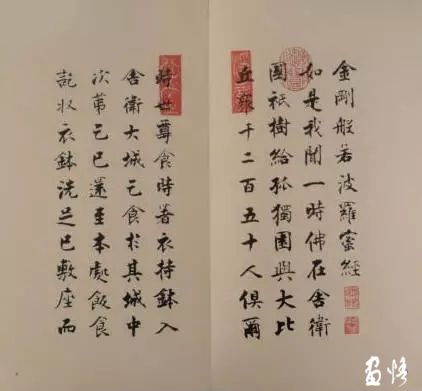 金剛般若波羅蜜經
如是我聞一時佛在舍衛
國祇樹給孤獨園與大比
丘眾千二百五十人俱爾
時世尊食時著衣持鉢入
舍衛大城乞食於其城中
次第乞已還至本處飯食
訖收衣鉢洗足已敷座而